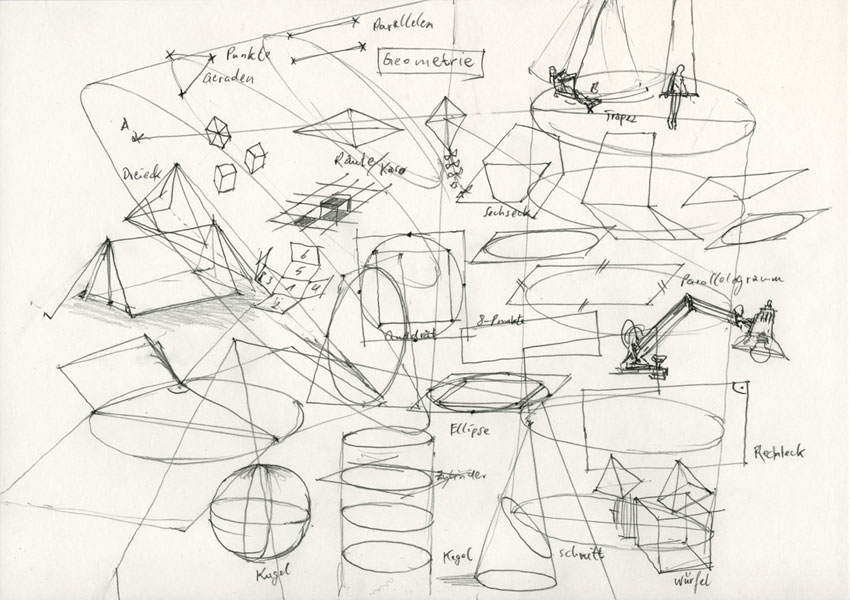 Parallelen
Punkte
Geraden
Geometrie
A
B
Trapez
Raute/Karo
Dreieck
Sechseck
6
5
3 1 4
2
Parallelogramm
Quadrat
8-Punkte
Ellipse
Rechteck
Zylinder
Kugel
Kegel
Schnitt
Würfel